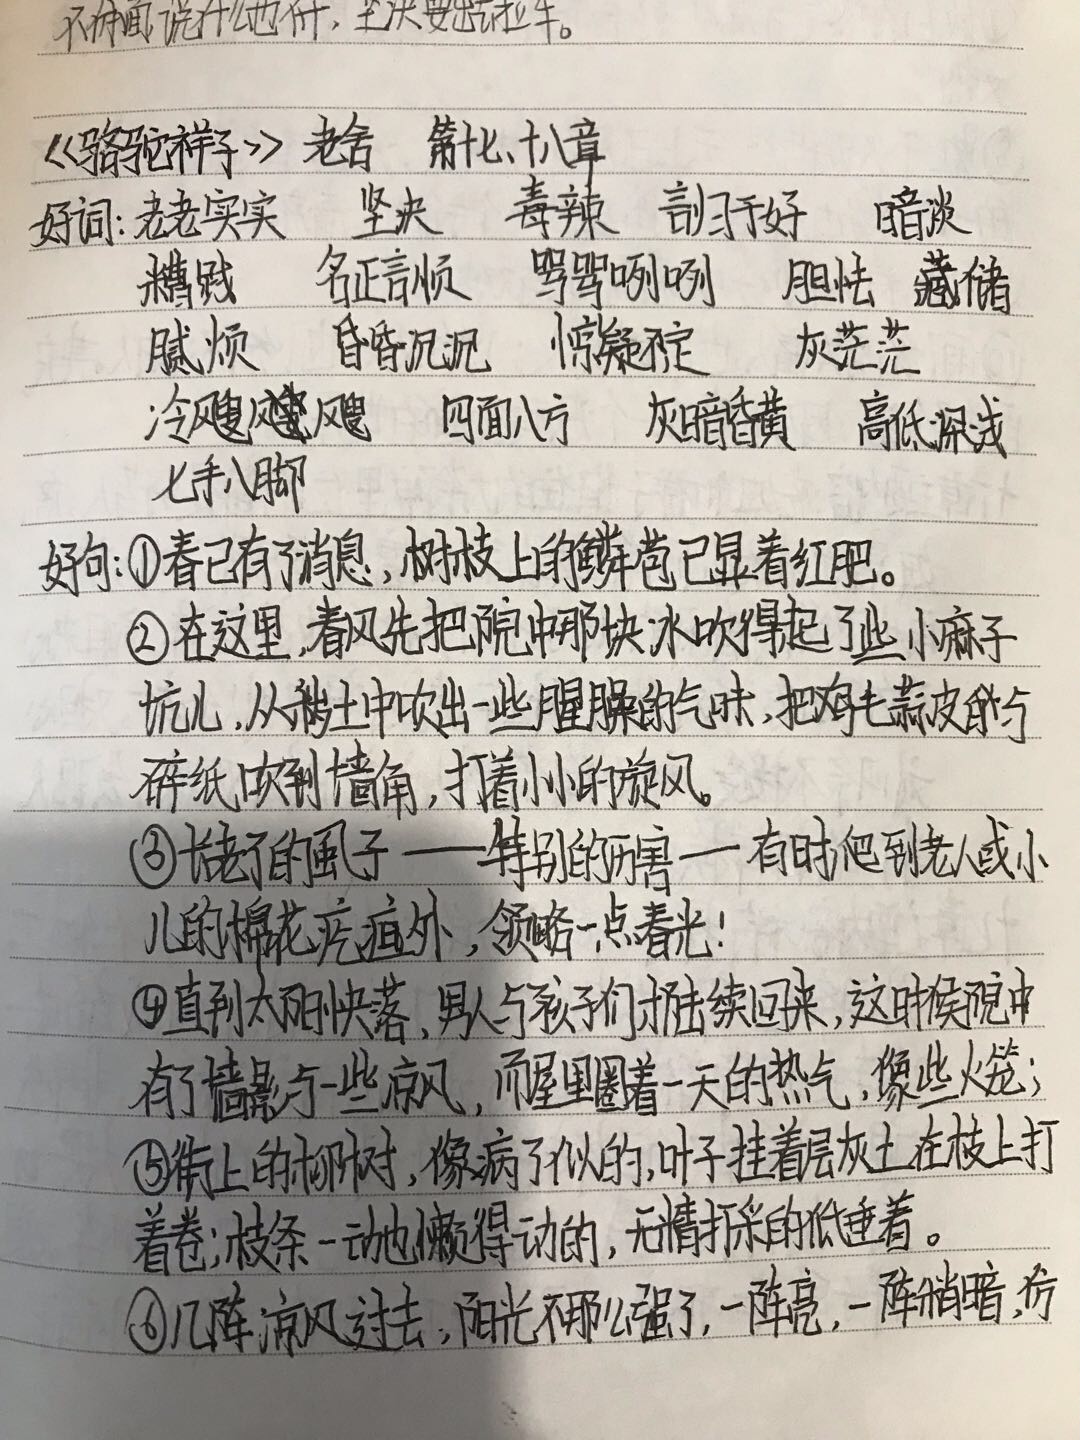 不体面,说什么也不干,坚决要出去拉车。
《骆驼祥子》 老舍 第十七、十八章
好词:老老实实 坚决 毒辣 刮于好 暗淡
糟践 名正言顺 骂骂咧咧 胆怯 藏储
腻烦 昏昏沉沉 惊疑不定 灰茫茫
冷飕飕 四面八方 灰暗昏黄 高低深浅
七手八脚
好句:①春已有了消息,树枝上的鳞苞已显着红肥。
②在这里,春风先把院中那块冰吹得起了些小麻子
坑儿,从秽土中吹出一些腥臊的气味,把鸡毛蒜皮的与
碎纸吹到墙角,打着小小的旋风。
③长老了的虱子——特别的厉害——有时爬到老人或小
儿的棉花疙疸外,领略一点春光!
④直到太阳快落,男人与孩子们才陆续回来,这时候院中
有了墙影与一些凉风,而屋里圈着一天的热气,像些火笼;
⑤街上的柳树,像病了似的,叶子挂着层灰土在枝上打
着卷;枝条一动也懒得动的,无精打采的低垂着。
⑥几阵凉风过去,阳光不那么强了,一阵亮,一阵稍暗,仿